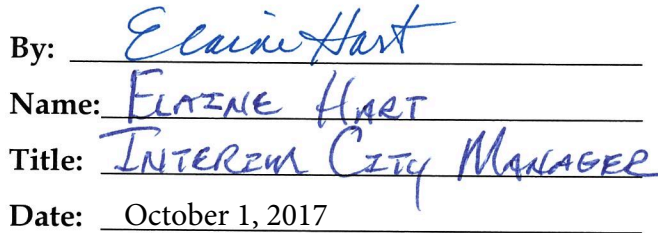 By: Elaine Hart
Name: ELAINE HART
Title: INTERIM CITY MANAGER
Date: October 1, 2017